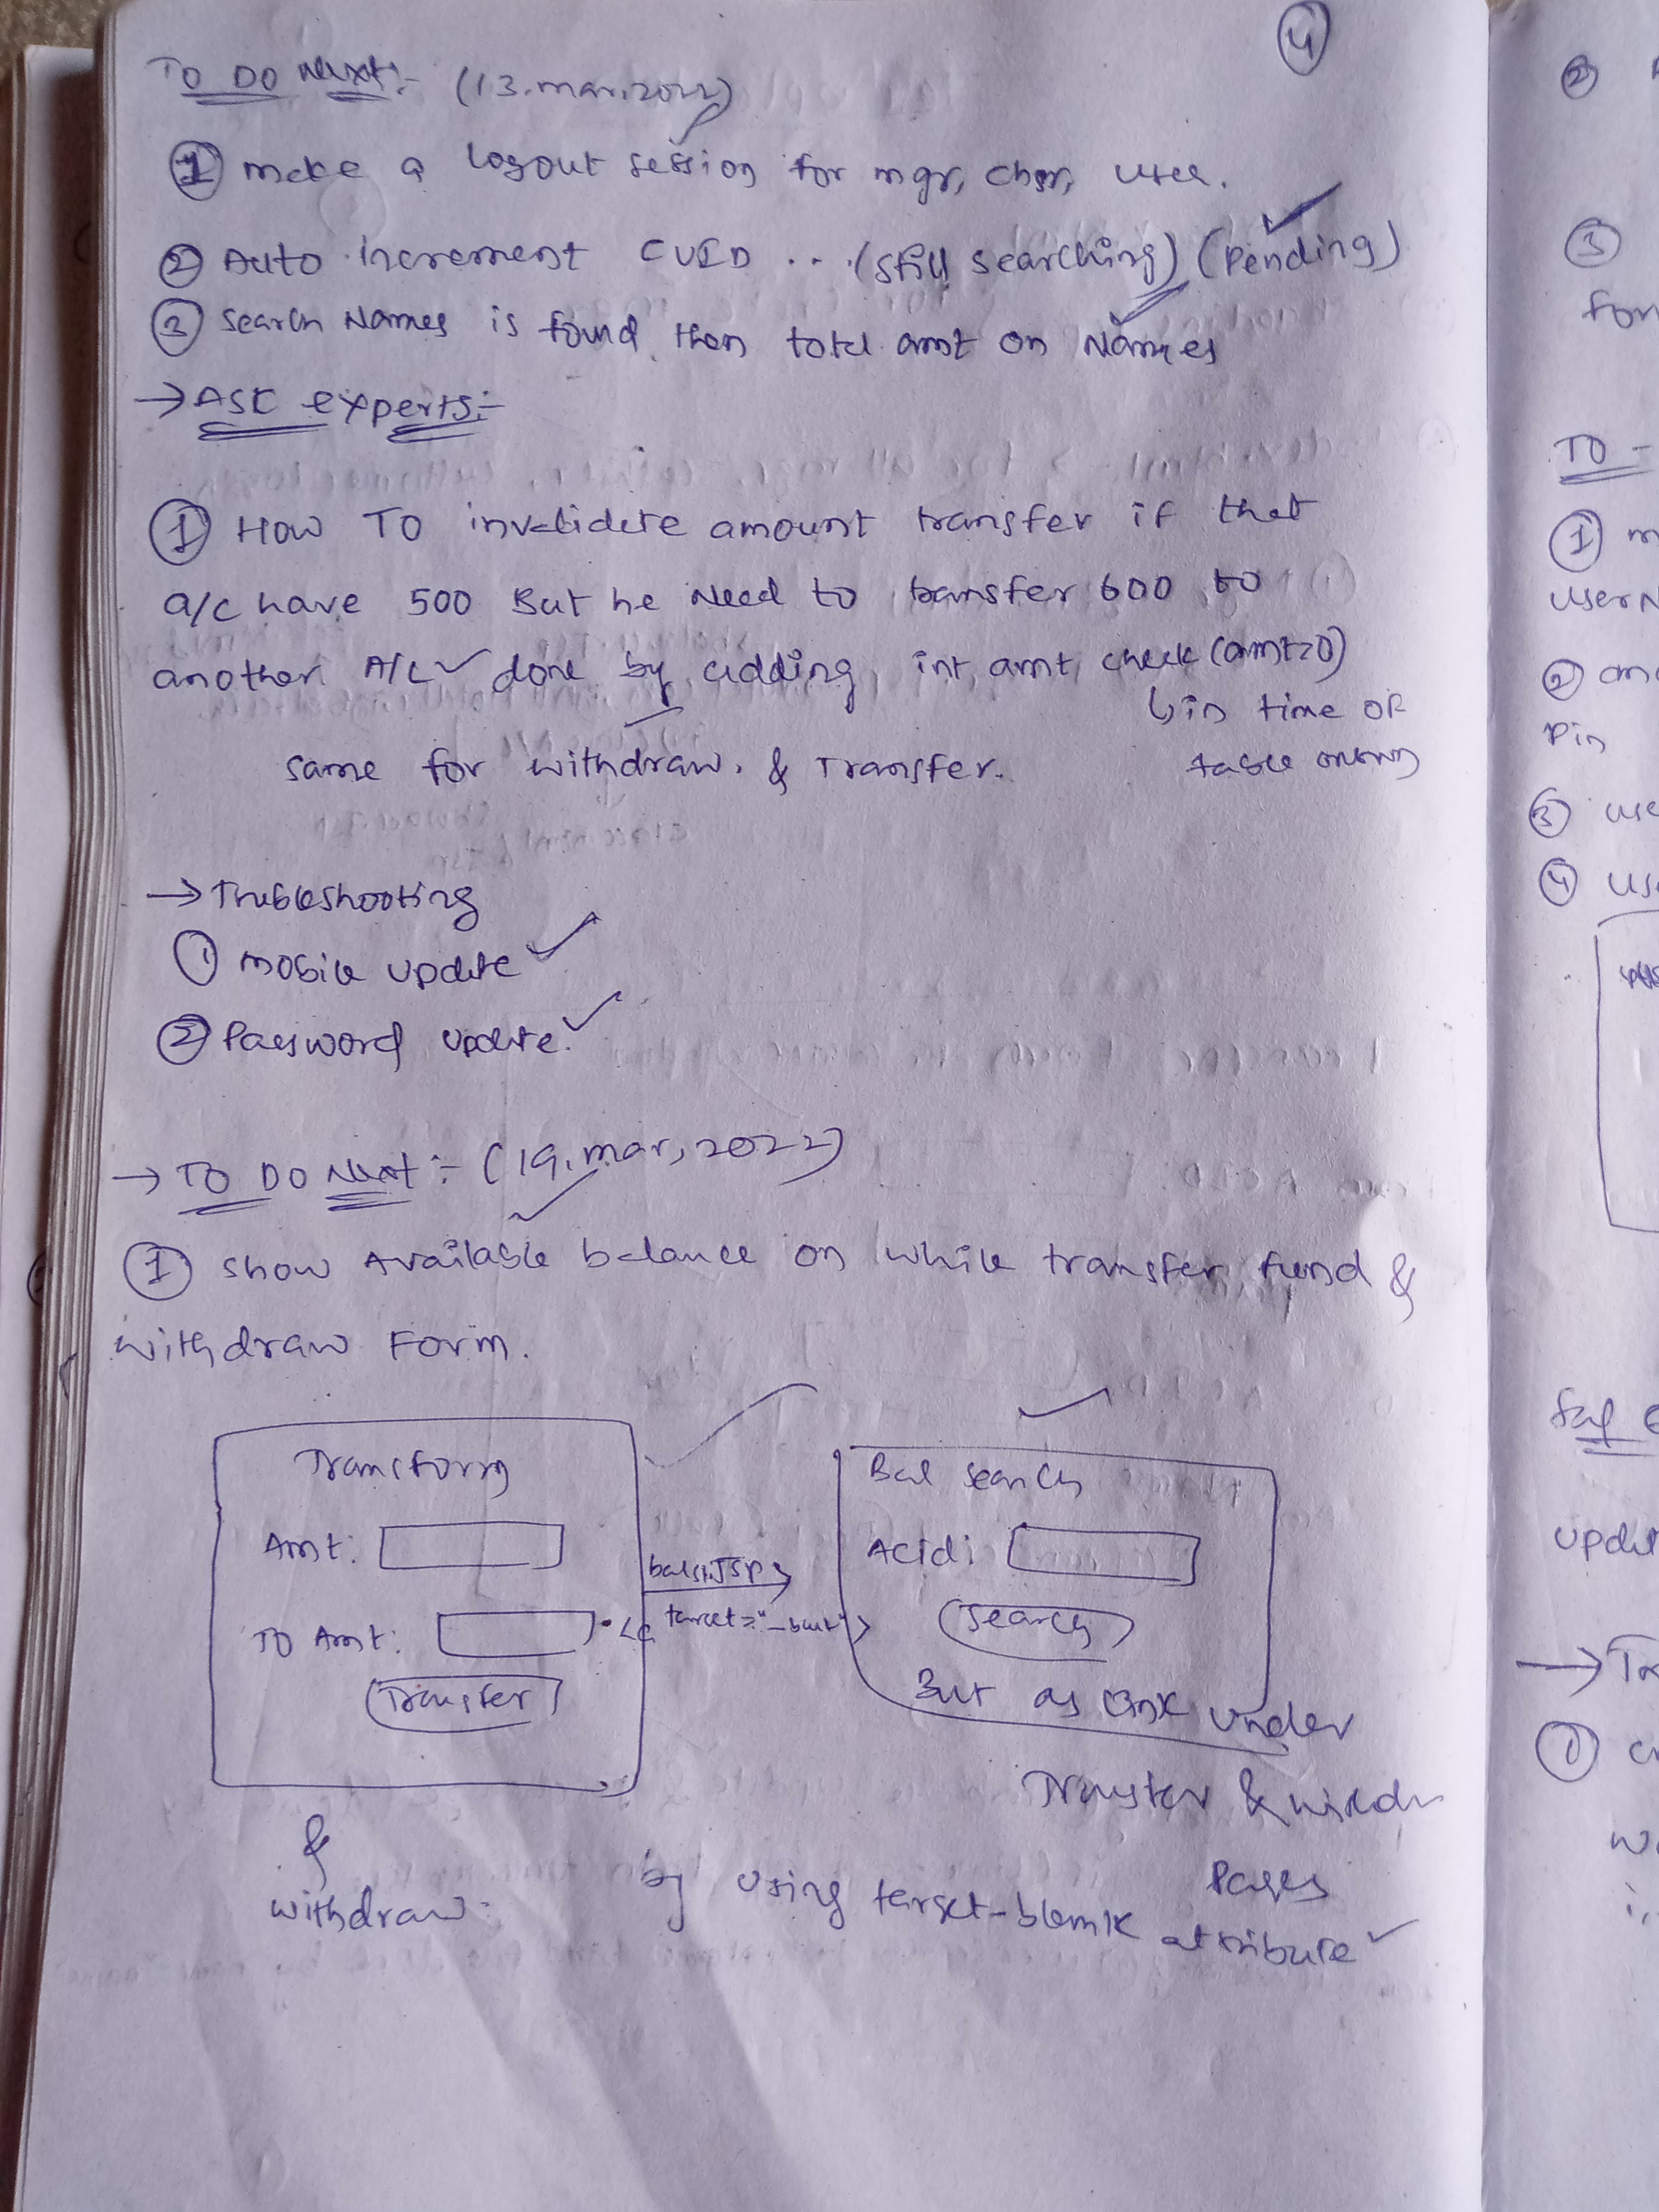 4
TO DO Next:- (13.mar.2022)
1 make a logout session for mgr, chsr, user.
2 Auto increment CUID ... (still searching) (Pending)
3 search Names is found then total amt on Names
→ ASK experts:-
1 HOW TO invalidate amount transfer if that
a/c have 500 But he Need to transfer 600 to
another A/C ✓ done by adding int amt check (amt>0)
↳ in time of
same for withdraw. & Transfer.
table
→ Trubleshooting
1 mobile update ✓
2 Password update. ✓
→ TO DO Next :- (19, mar, 2022)
1 show Available balance on while transfer fund &
withdraw Form.
Transform
Bal search
Amt:
Acid:
TO Amt:
<a target="_blank">
search
Transfer
But as link under
Transfer &
&
Pages
withdraw:
by using target-blank attribute ✓
2
3
TO -
1
2
Pin
3 use
4
→
1